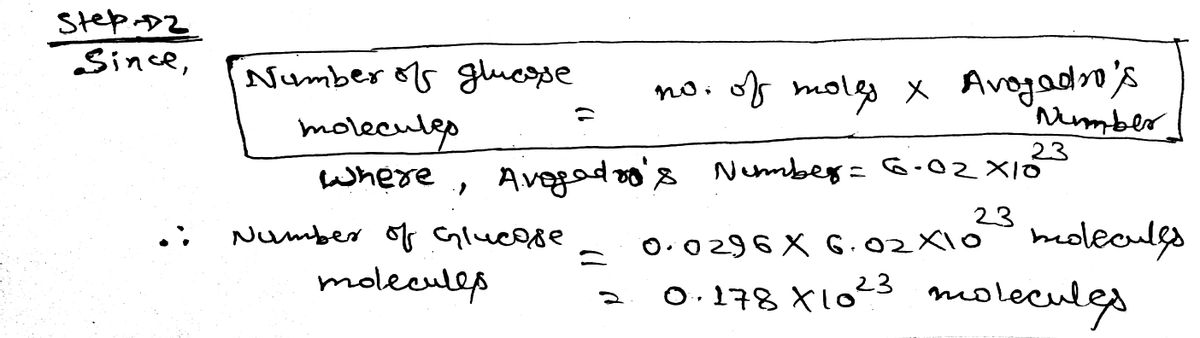 Step→2
Since,
Number of glucose molecules = no. of moles × Avogadro's Number
where, Avogadro's Number = 6.02 ×10²³
∴ Number of Glucose molecules = 0.0296 × 6.02 ×10²³ molecules
= 0.178 ×10²³ molecules